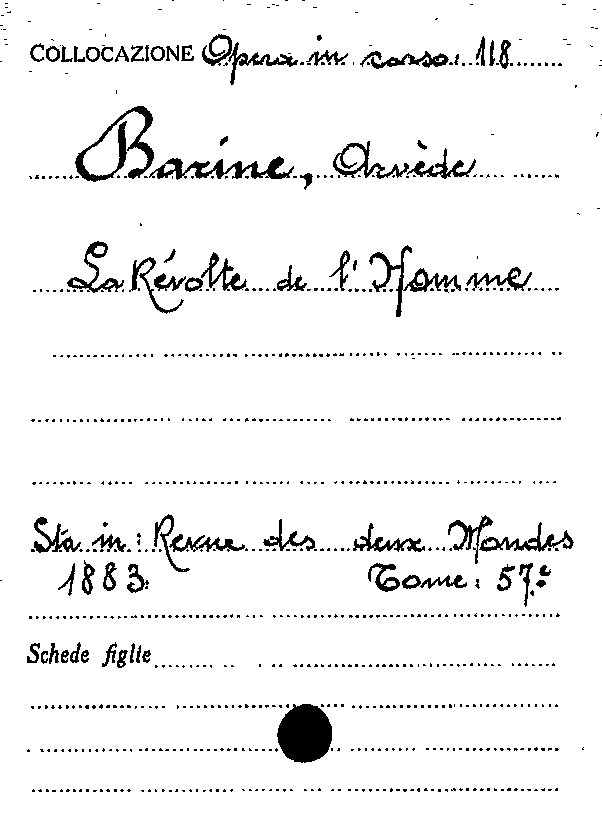 COLLOCAZIONE Opera in corso: 118
Barine, Arvède
La Révolte de l'Homme
Sta in: Revue des deux Mondes
1883. Tome: 57.e
Schede figlie